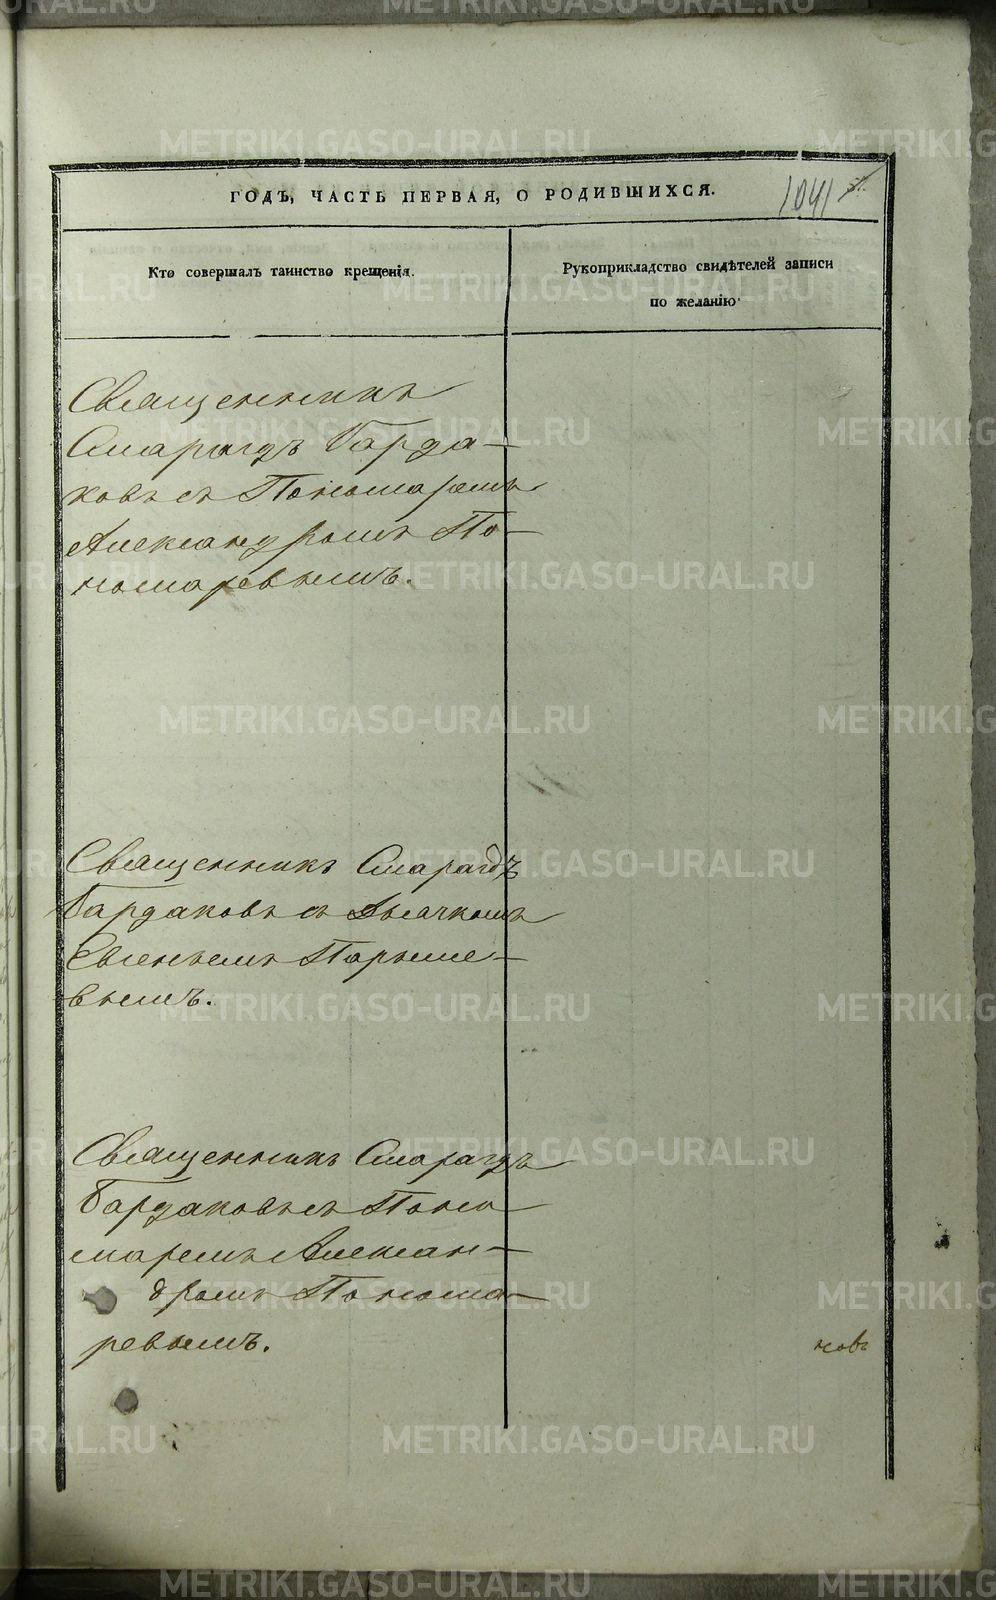 ГОДЪ, ЧАСТЬ ПЕРВАЯ, О РОДИВШИХСЯ.
1041
Кто совершалъ таинство крещенія.
Рукоприкладство свидѣтелей записи
по желанію
Священникъ
Смарагдъ Барда-
ковъ съ Пономаремъ
Александромъ По-
номаревымъ.
Священникъ Смарагдъ
Бардаковъ съ Дьячкомъ
Евгеньемъ Парыше-
вымъ.
Священникъ Смарагдъ
Бардаковъ съ Поно
маремъ Алексан-
дромъ Понома-
ревымъ.
ковъ
METRIKI.GASO-URAL.RU